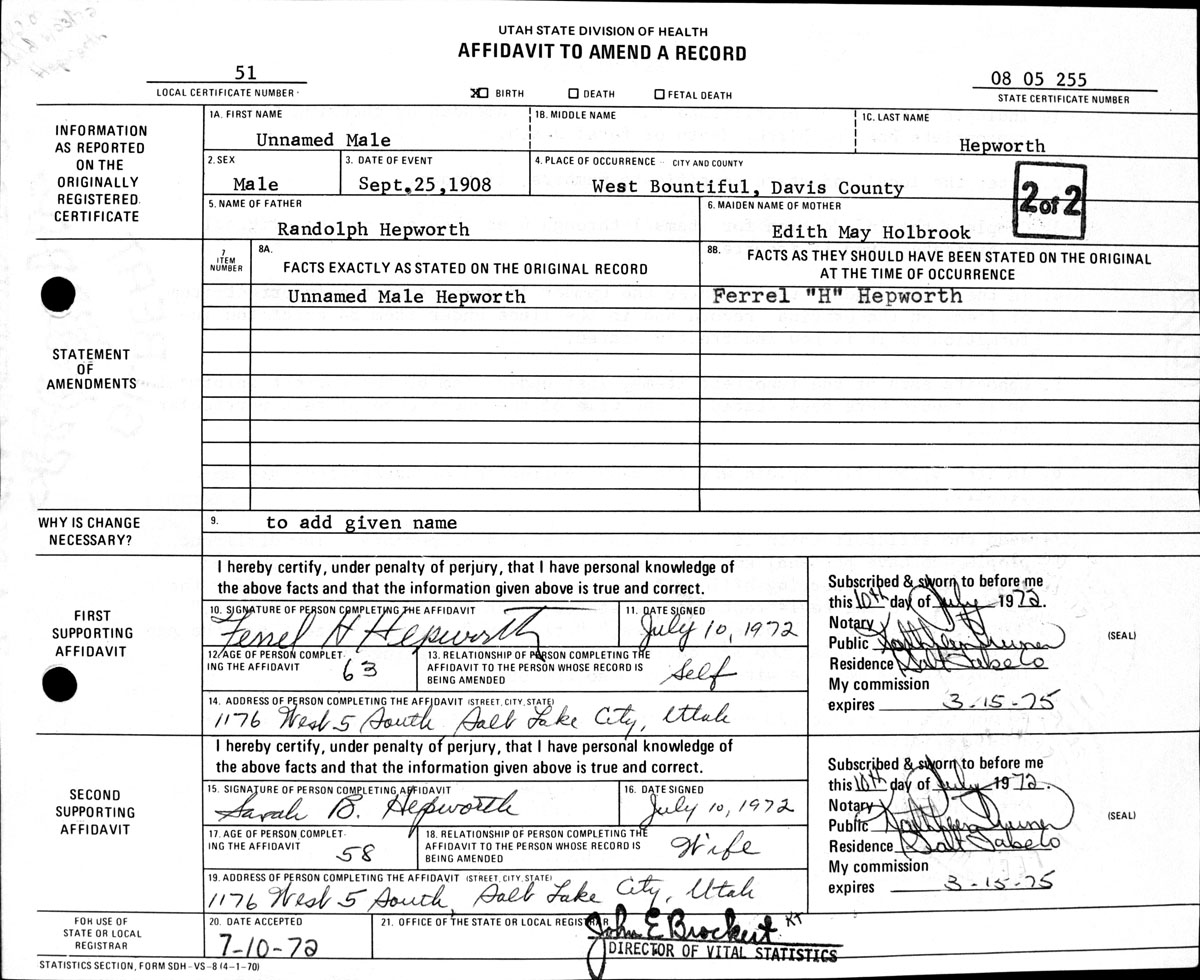 UTAH STATE DIVISION OF HEALTH
AFFIDAVIT TO AMEND A RECORD
51
LOCAL CERTIFICATE NUMBER
X BIRTH
DEATH
FETAL DEATH
08 05 255
STATE CERTIFICATE NUMBER
INFORMATION
AS REPORTED
ON THE
ORIGINALLY
REGISTERED
CERTIFICATE
1A. FIRST NAME
Unnamed Male
1B. MIDDLE NAME
1C. LAST NAME
Hepworth
2. SEX
Male
3. DATE OF EVENT
Sept.25,1908
4. PLACE OF OCCURRENCE - CITY AND COUNTY
West Bountiful, Davis County
2 of 2
5. NAME OF FATHER
Randolph Hepworth
6. MAIDEN NAME OF MOTHER
Edith May Holbrook
STATEMENT
OF
AMENDMENTS
7
ITEM
NUMBER
8A.
FACTS EXACTLY AS STATED ON THE ORIGINAL RECORD
8B.
FACTS AS THEY SHOULD HAVE BEEN STATED ON THE ORIGINAL
AT THE TIME OF OCCURRENCE
Unnamed Male Hepworth
Ferrel "H" Hepworth
WHY IS CHANGE
NECESSARY?
9.
to add given name
FIRST
SUPPORTING
AFFIDAVIT
I hereby certify, under penalty of perjury, that I have personal knowledge of
the above facts and that the information given above is true and correct.
10. SIGNATURE OF PERSON COMPLETING THE AFFIDAVIT
Ferrel H Hepworth
11. DATE SIGNED
July 10, 1972
12. AGE OF PERSON COMPLET-
ING THE AFFIDAVIT
63
13. RELATIONSHIP OF PERSON COMPLETING THE
AFFIDAVIT TO THE PERSON WHOSE RECORD IS
BEING AMENDED
Self
14. ADDRESS OF PERSON COMPLETING THE AFFIDAVIT (STREET, CITY, STATE)
1176 West 5 South Salt Lake City, Utah
Subscribed & sworn to before me
this 10th day of July 1972.
Notary
Public Kathleen
Residence Salt
My commission
expires 3-15-75
(SEAL)
SECOND
SUPPORTING
AFFIDAVIT
I hereby certify, under penalty of perjury, that I have personal knowledge of
the above facts and that the information given above is true and correct.
15. SIGNATURE OF PERSON COMPLETING AFFIDAVIT
Sarah B. Hepworth
16. DATE SIGNED
July 10, 1972
17. AGE OF PERSON COMPLET-
ING THE AFFIDAVIT
58
18. RELATIONSHIP OF PERSON COMPLETING THE
AFFIDAVIT TO THE PERSON WHOSE RECORD IS
BEING AMENDED
Wife
19. ADDRESS OF PERSON COMPLETING THE AFFIDAVIT (STREET, CITY, STATE)
1176 West 5 South, Salt Lake City, Utah
Subscribed & sworn to before me
this 10th day of July 1972.
Notary
Public Kathleen
Residence Salt
My commission
expires 3-15-75
(SEAL)
FOR USE OF
STATE OR LOCAL
REGISTRAR
20. DATE ACCEPTED
7-10-72
21. OFFICE OF THE STATE OR LOCAL REGISTRAR
John E Brockert KT
DIRECTOR OF VITAL STATISTICS
STATISTICS SECTION, FORM SDH-VS-8 (4-1-70)